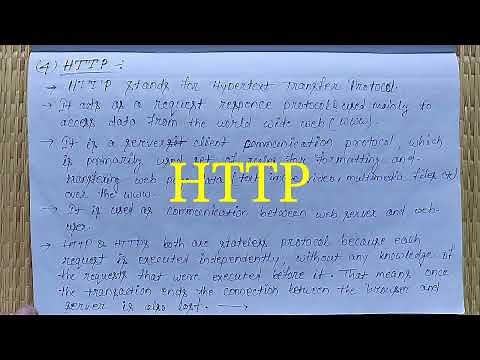 (4) HTTP :-
→ HTTP stands for Hypertext Transfer Protocol.
→ It acts as a request responce protocol used mainly to
access data from the world wide web (www).
→ It is a server client communication protocol, which
is primarily used set of rules for formatting and
transfering web data text, image, video, multimedia files etc)
over the www.
HTTP
→ It is used as communication between web server and web-
user.
→ HTTP & HTTPs both are stateless protocol because each
request is executed independently, without any knowledge of
the requests that were executed before it. That means once
the transaction ends the connection between the browser and
server is also lost.